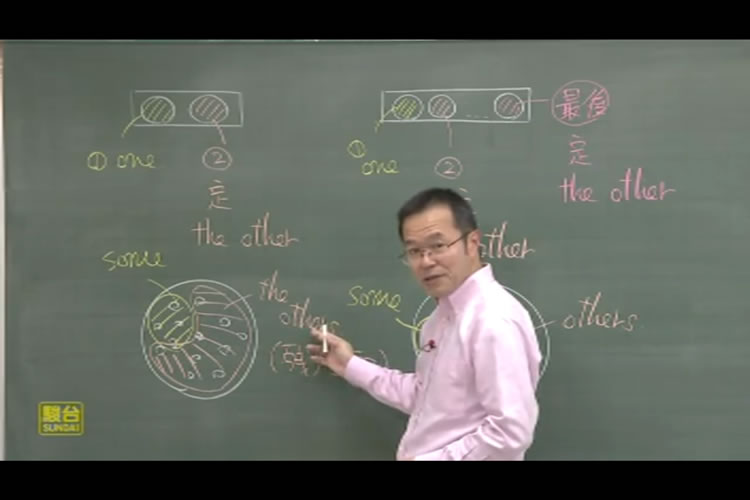 ① one
②
定
the other
① one
②
最後
定
the other
other
some
the
others
some
others
駿台
SUNDAI